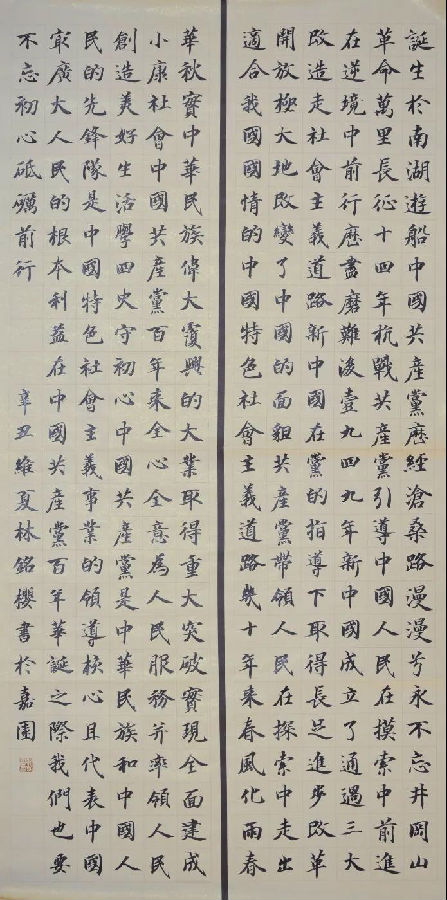 誕生於南湖遊船中國共產黨歷經滄桑路漫漫兮永不忘井岡山
革命萬里長征十四年抗戰共產黨引導中國人民在摸索中前進
在逆境中前行歷盡磨難後壹九四九年新中國成立了通過三大
改造走社會主義道路新中國在黨的指導下取得長足進步改革
開放極大地改變了中國的面貌共產黨帶領人民在探索中走出
適合我國國情的中國特色社會主義道路幾十年來春風化雨春
華秋實中華民族偉大覆興的大業取得重大突破實現全面建成
小康社會中國共產黨百年來全心全意為人民服務并率領人民
創造美好生活學四史守初心中國共產黨是中華民族和中國人
民的先鋒隊是中國特色社會主義事業的領導核心且代表中國
最廣大人民的根本利益在中國共產黨百年華誕之際我們也要
不忘初心砥礪前行 辛丑維夏林銘櫻書於嘉園